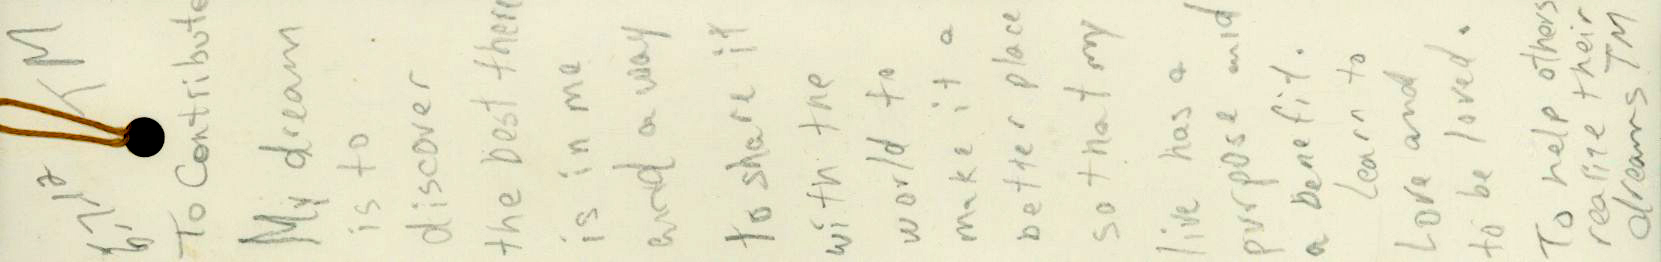 TM
To Contribute
My dream
is to
discover
the best there
is in me
and a way
to share it
with the
world to
make it a
better place
so that my
live has a
purpose and
a benefit.
Learn to
Love and
to be loved.
To help others
realize their
dreams TM